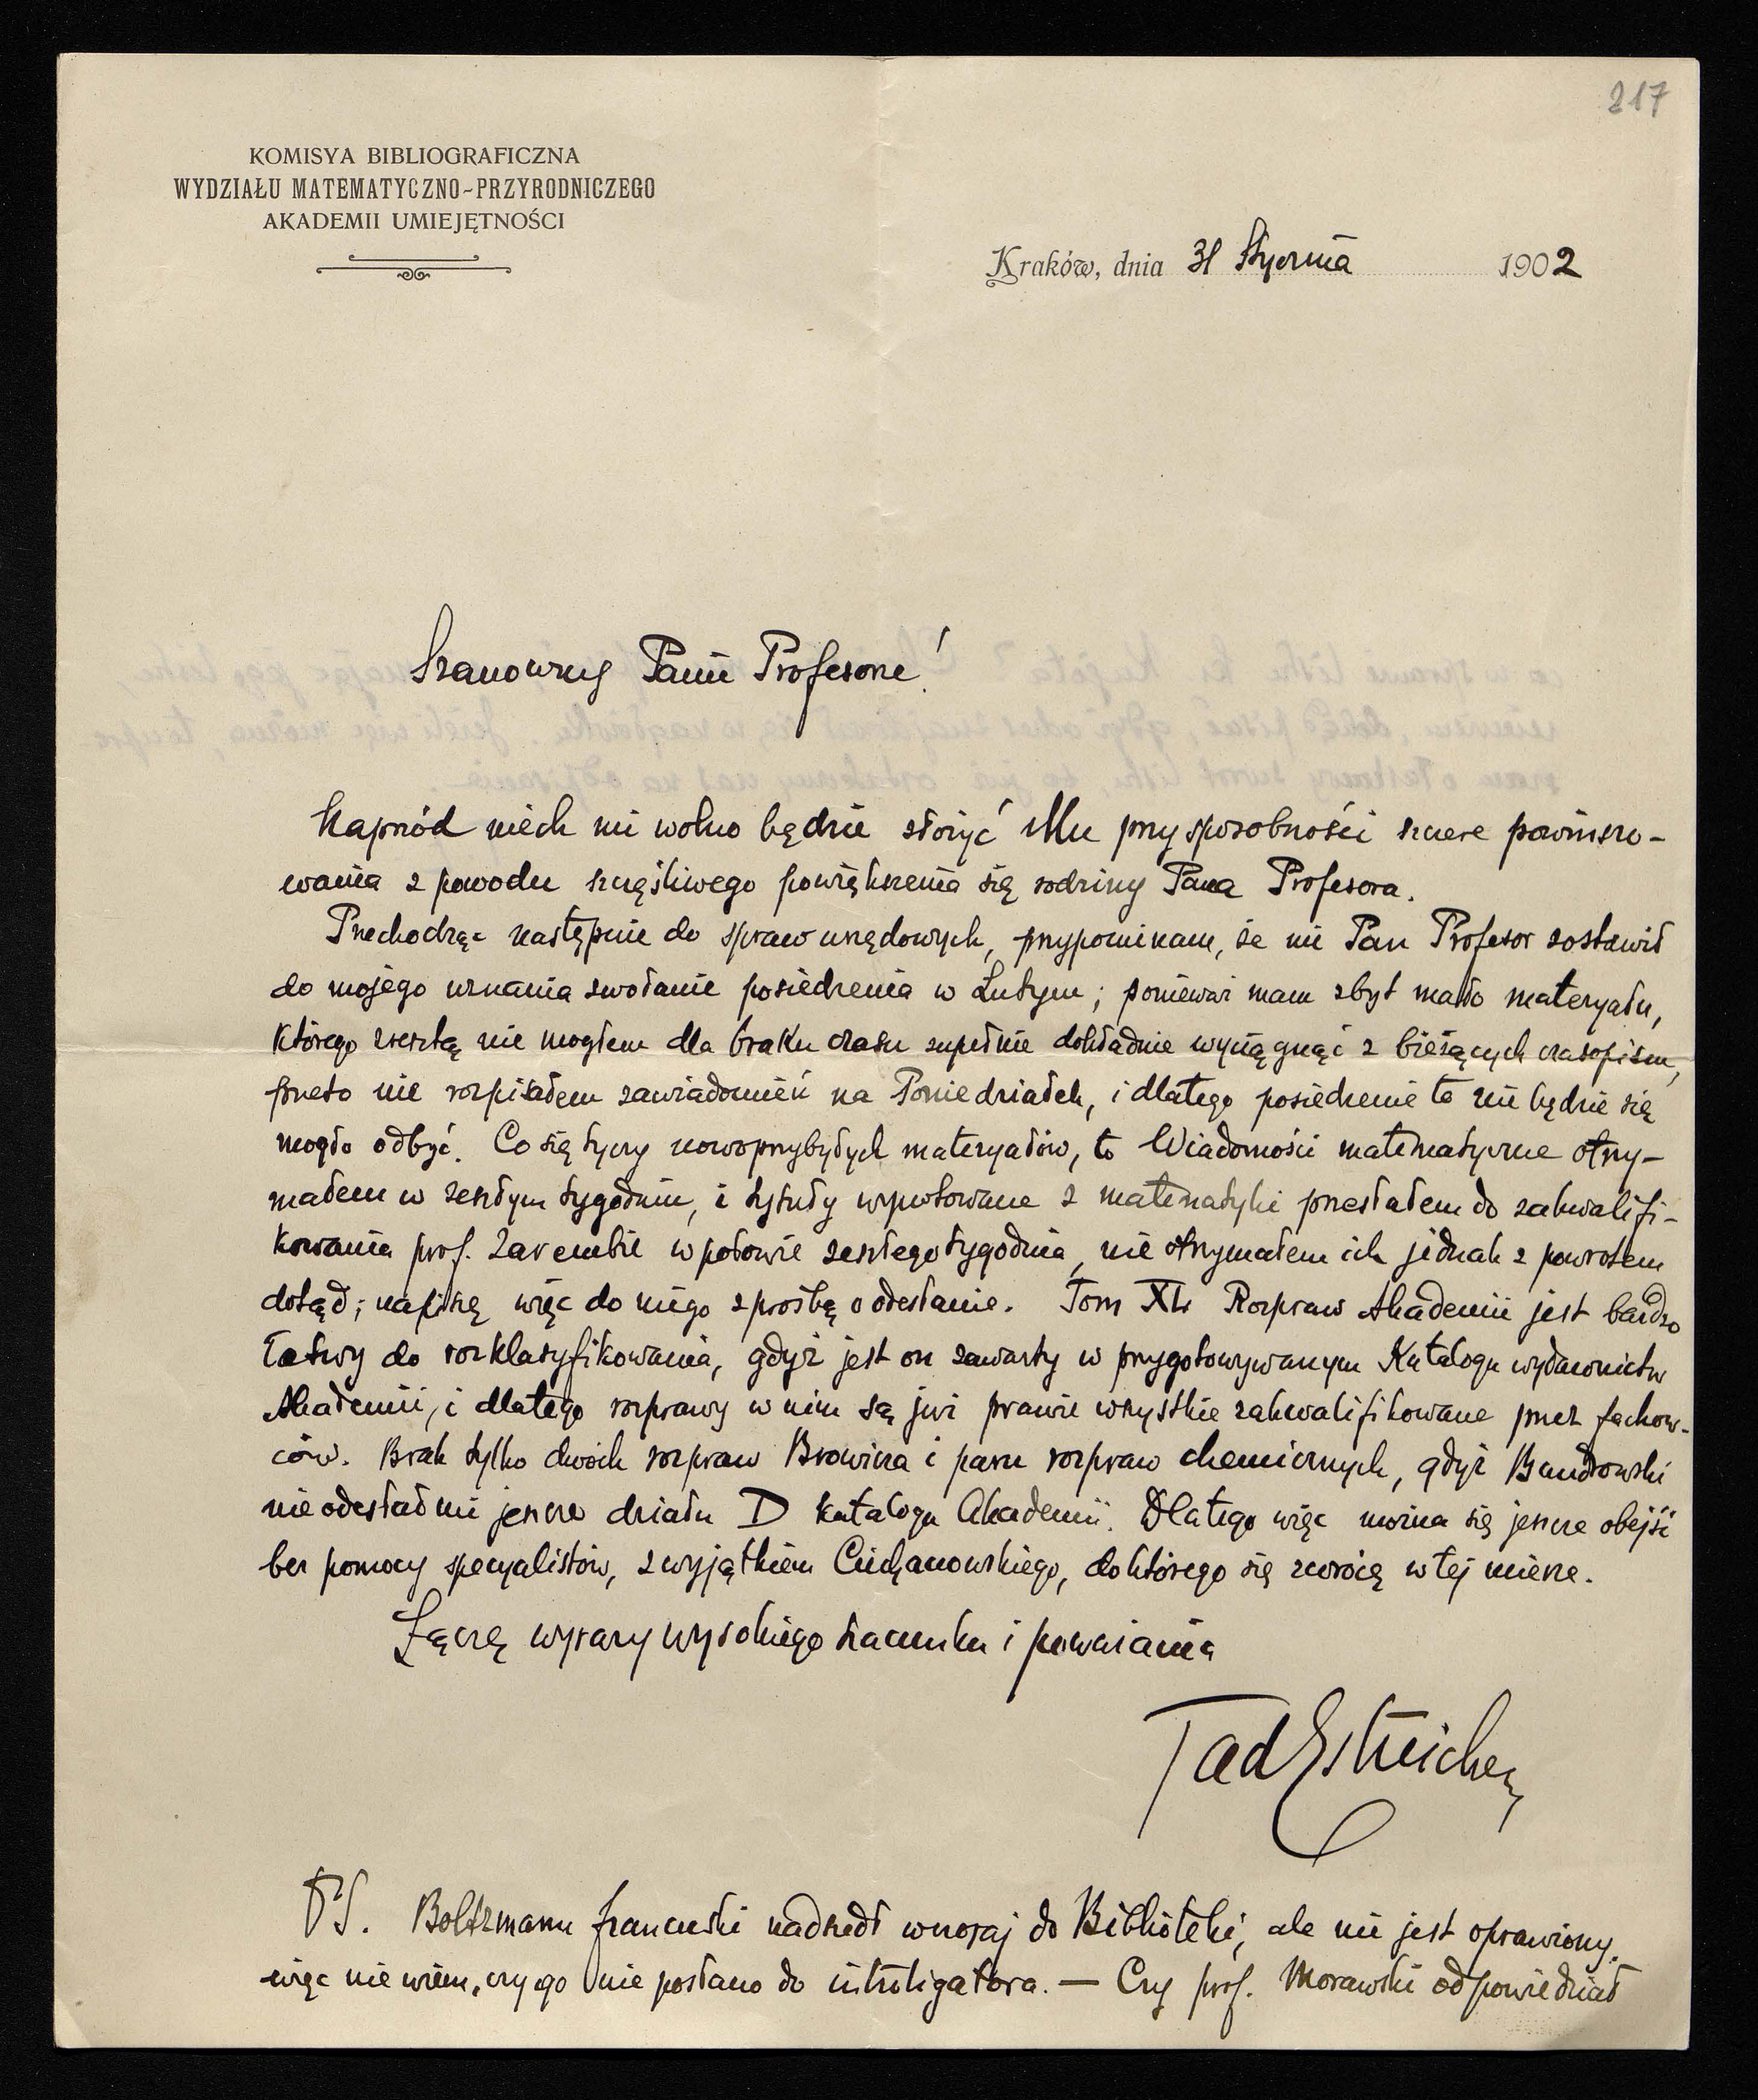 217
KOMISYA BIBLIOGRAFICZNA
WYDZIAŁU MATEMATYCZNO-PRZYRODNICZEGO
AKADEMII UMIEJĘTNOŚCI
Kraków, dnia 31 Stycznia 1902
Szanowny Panie Profesorze!
Naprzód niech mi wolno będzie złożyć Mu przy sposobności szczere powinszo-
wania z powodu szczęśliwego powiększenia się rodziny Pana Profesora.
Przechodząc następnie do spraw urzędowych, przypominam, że mi Pan Profesor zostawił
do mojego uznania zwołanie posiedzenia w Lutym; ponieważ mam zbyt mało materyału,
którego zresztą nie mogłem dla braku czasu zupełnie dokładnie wyciągnąć z bieżących czasopism,
przeto nie rozpisałem zawiadomień na Poniedziałek, i dlatego posiedzenie to nie będzie się
mogło odbyć. Co się tyczy nowoprzybyłych materyałów, to Wiadomości matematyczne otrzy-
małem w zeszłym tygodniu, i tytuły wynotowane z matematyki przesłałem do zakwalifi-
kowania prof. Zarembie w połowie zeszłego tygodnia, nie otrzymałem ich jednak z powrotem
dotąd; napiszę więc do niego z prośbą o odesłanie. Tom XL Rozpraw Akademii jest bardzo
łatwy do rozklasyfikowania, gdyż jest on zawarty w przygotowywanym Katalogu wydawnictw
Akademii, i dlatego rozprawy w nim są już prawie wszystkie zakwalifikowane przez fachow-
ców. Brak tylko dwóch rozpraw Browicza i paru rozpraw chemicznych, gdyż Bandrowski
nie odesłał mi jeszcze działu D katalogu Akademii. Dlatego więc można się jeszcze obejść
bez pomocy specyalistów, z wyjątkiem Ciechanowskiego, do którego się zwrócę w tej mierze.
Łączę wyrazy wysokiego szacunku i poważania
Tad Estreicher
PS. Boltzmann francuski nadszedł wczoraj do Biblioteki, ale nie jest oprawiony,
więc nie wiem, czy go nie posłano do introligatora. — Czy prof. Morawski odpowiedział